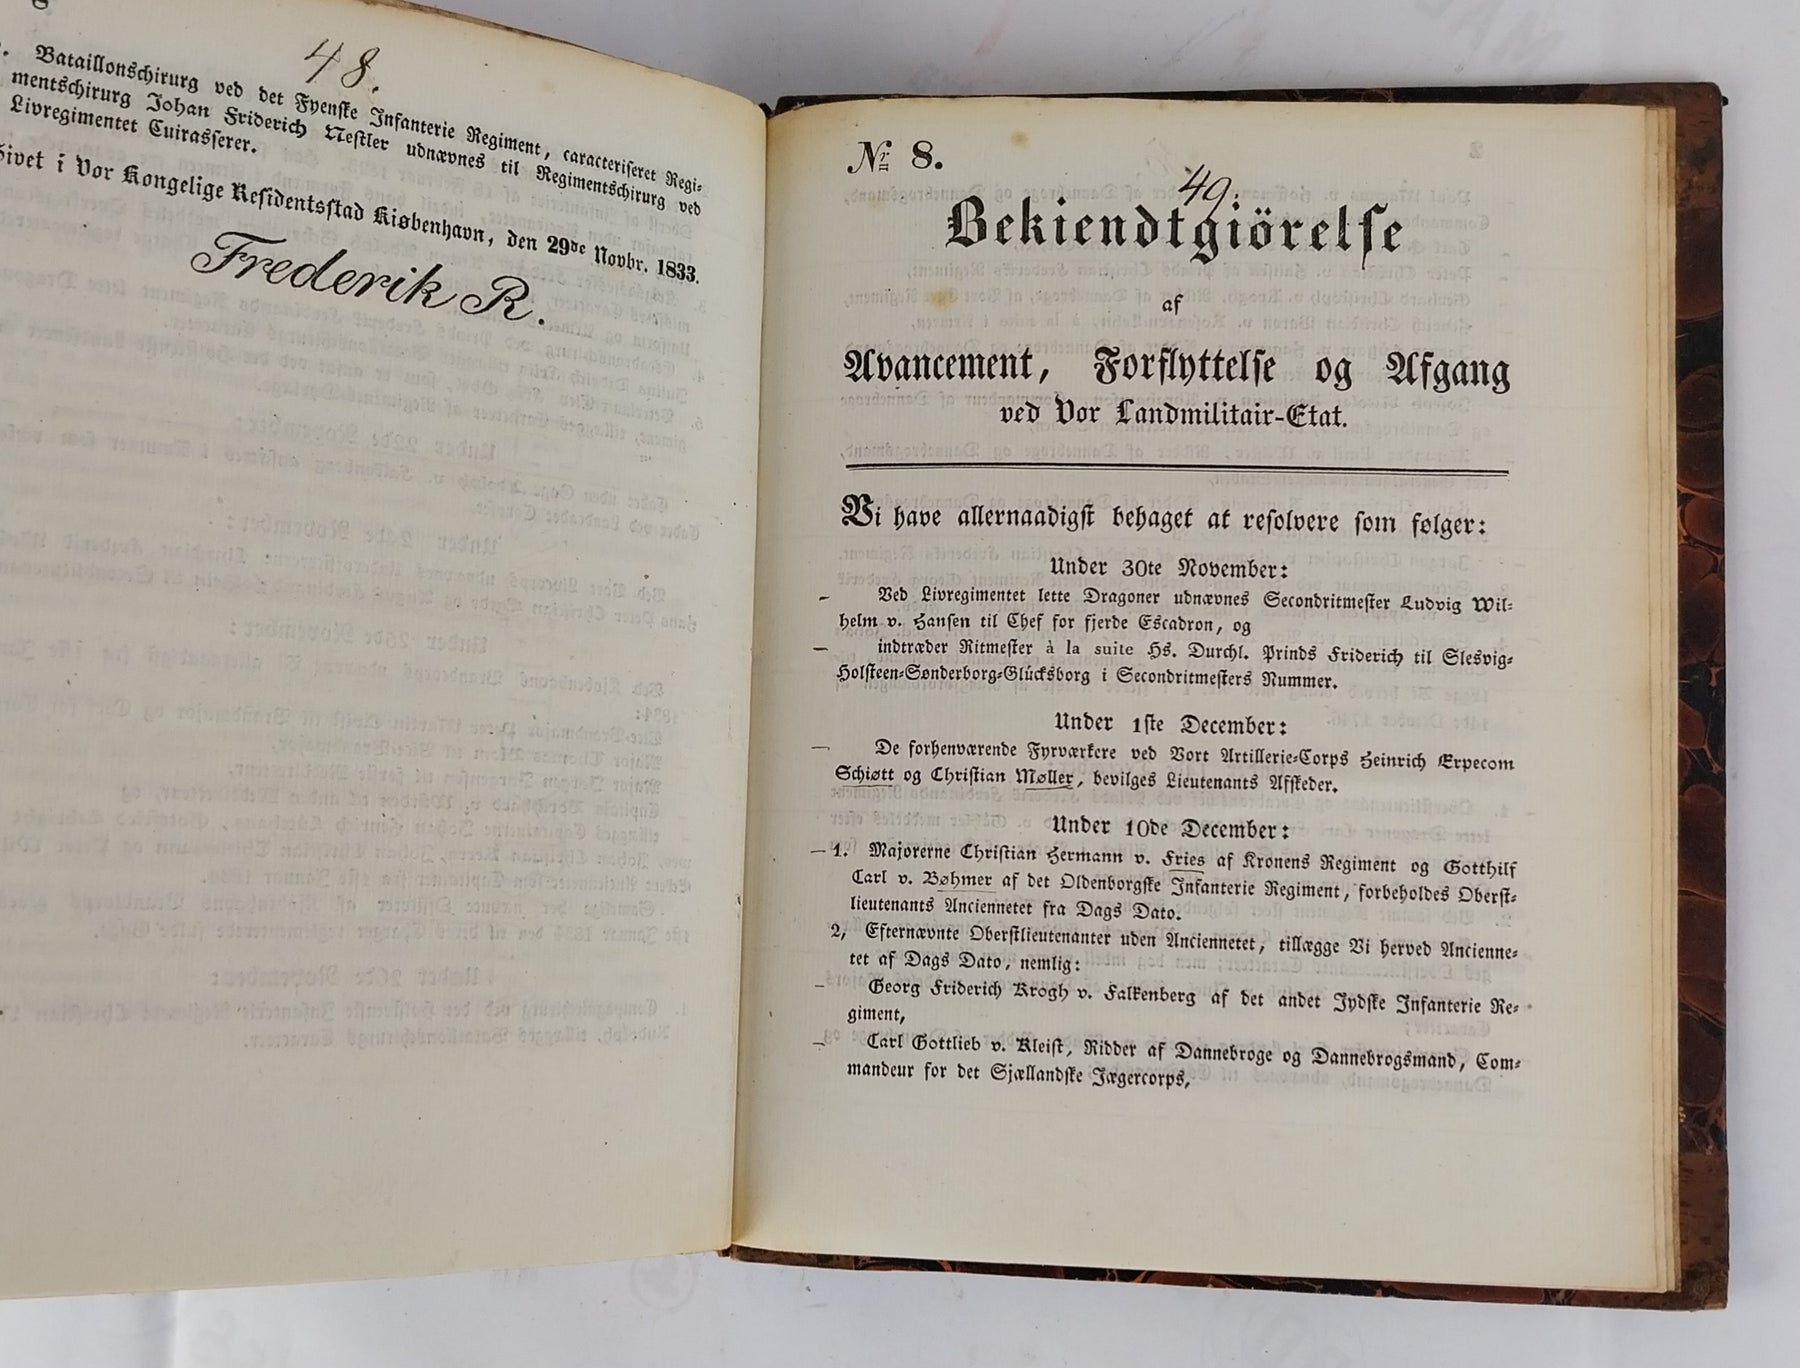 48.
Bataillonschirurg ved det Fyenske Infanterie Regiment, caracteriseret Regi-
mentschirurg Johan Friderich Nestler udnævnes til Regimentschirurg ved
Livregimentet Cuirasserer.
Givet i Vor Kongelige Residentsstad Kiøbenhavn, den 29de Novbr. 1833.
Frederik R.
Nr 8.
49.
Bekiendtgiörelse
af
Avancement, Forflyttelse og Afgang
ved Vor Landmilitair-Etat.
Vi have allernaadigst behaget at resolvere som følger:
Under 30te November:
- Ved Livregimentet lette Dragoner udnævnes Secondritmester Ludvig Wil-
helm v. Hansen til Chef for fjerde Escadron, og
- indtræder Ritmester à la suite Hs. Durchl. Prinds Friderich til Slesvig-
Holsteen-Sønderborg-Glücksborg i Secondritmesters Nummer.
Under 1ste December:
- De forhenværende Fyrværkere ved Vort Artillerie-Corps Heinrich Erpecom
Schiøtt og Christian Møller, bevilges Lieutenants Afskeder.
Under 10de December:
- 1. Majorerne Christian Hermann v. Fries af Kronens Regiment og Gotthilf
Carl v. Bøhmer af det Oldenborgske Infanterie Regiment, forbeholdes Oberst-
lieutenants Anciennetet fra Dags Dato.
2, Efternævnte Oberstlieutenanter uden Anciennetet, tillægge Vi herved Ancienne-
tet af Dags Dato, nemlig:
- Georg Friderich Krogh v. Falkenberg af det andet Jydske Infanterie Re-
giment,
- Carl Gottlieb v. Kleist, Ridder af Dannebroge og Dannebrogsmand, Com-
mandeur for det Sjællandske Jægercorps,